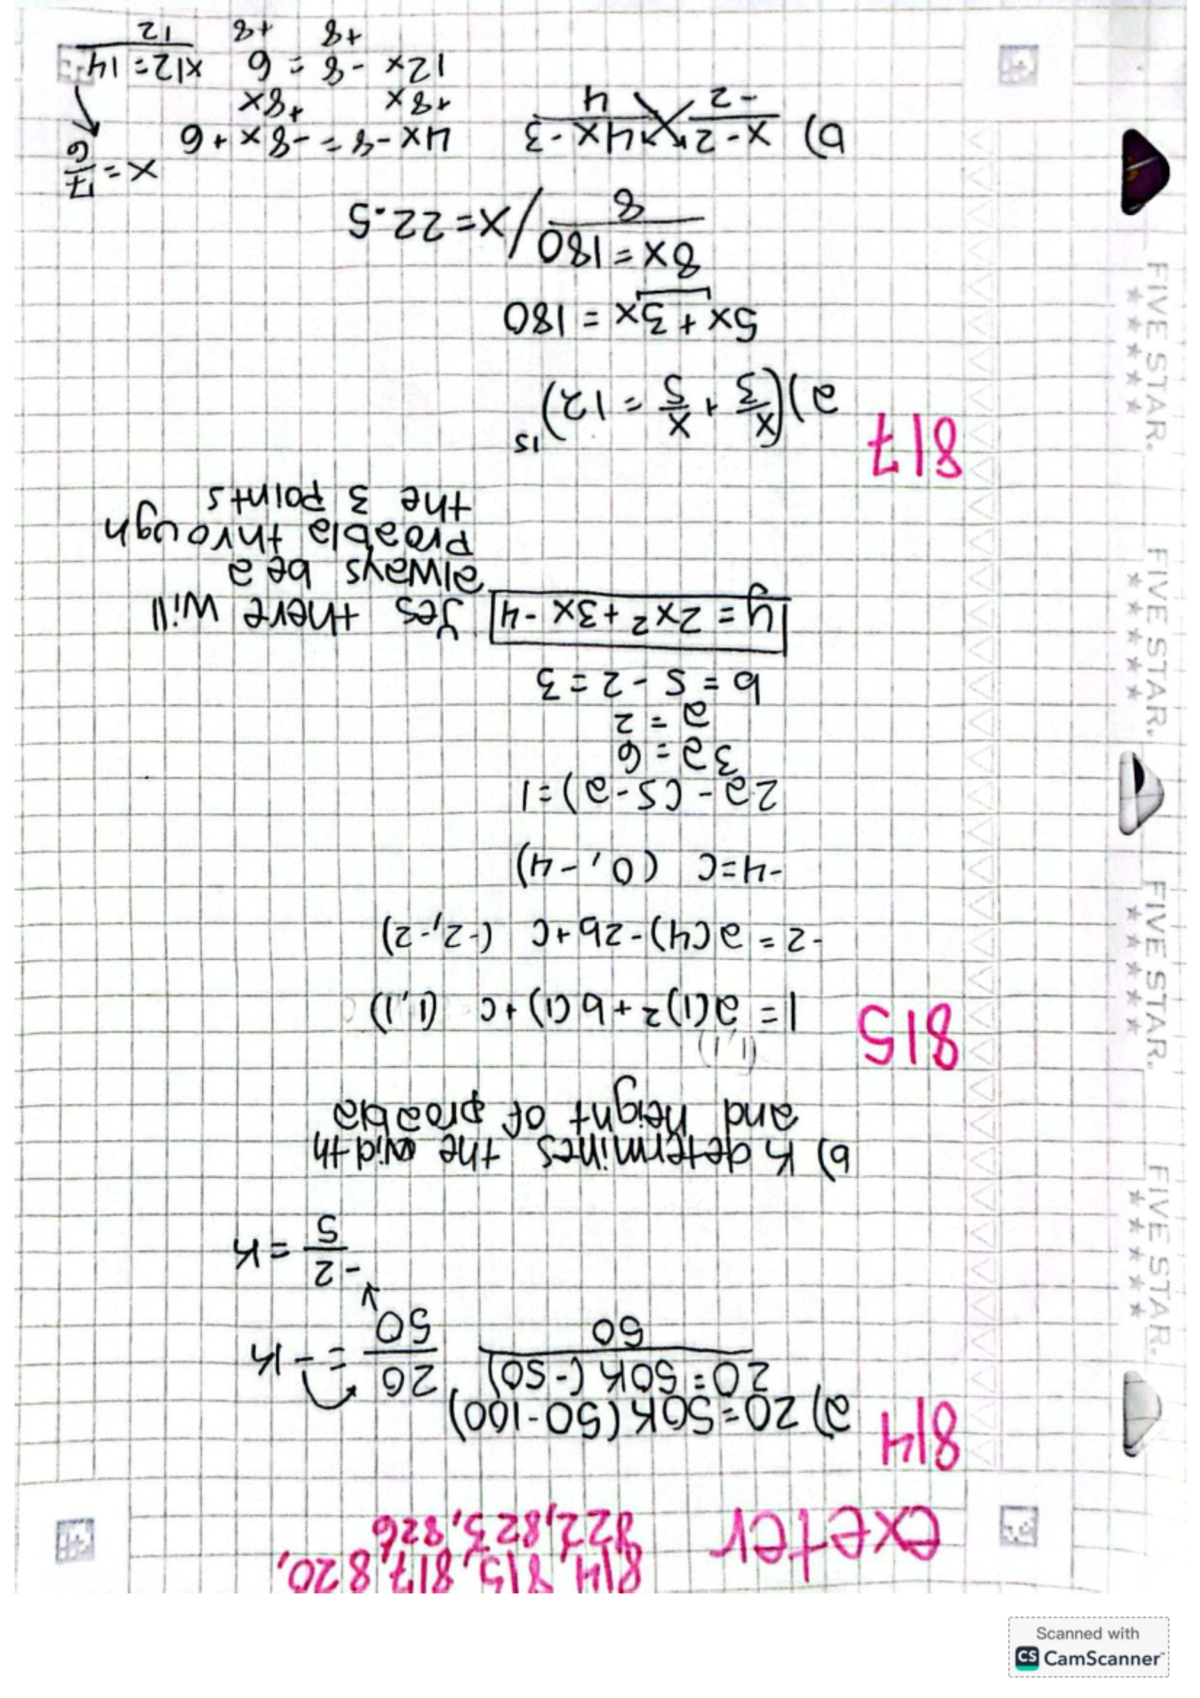 814, 815, 817, 820,
exeter 822, 823, 826
814 a) 20=50K(50-100)
20=50K(-50) / 50
20/50 = -K
-2/5 = K
b) K determines the width
and height of proabla
815 (1,1)
1 = a(1)2+b(1)+c (1,1)
-2 = a(4)-2b+c (-2,-2)
-4=c (0,-4)
2a-(5-a)=1
3a=6
a=2
b=5-2=3
y=2x²+3x-4 yes there will
always be a
proabla through
the 3 points
817 a) (x/3 + x/5 = 12) 15
5x+3x=180
8x=180 / 8 x=22.5
b) x-2/-2 4x-3/4 4x-8=-8x+6 x=7/6
+8x +8x
12x-8=6 x12=14
+8 +8 12
FIVE STAR.
FIVE STAR.
FIVE STAR.
FIVE STAR.
Scanned with
CS CamScanner